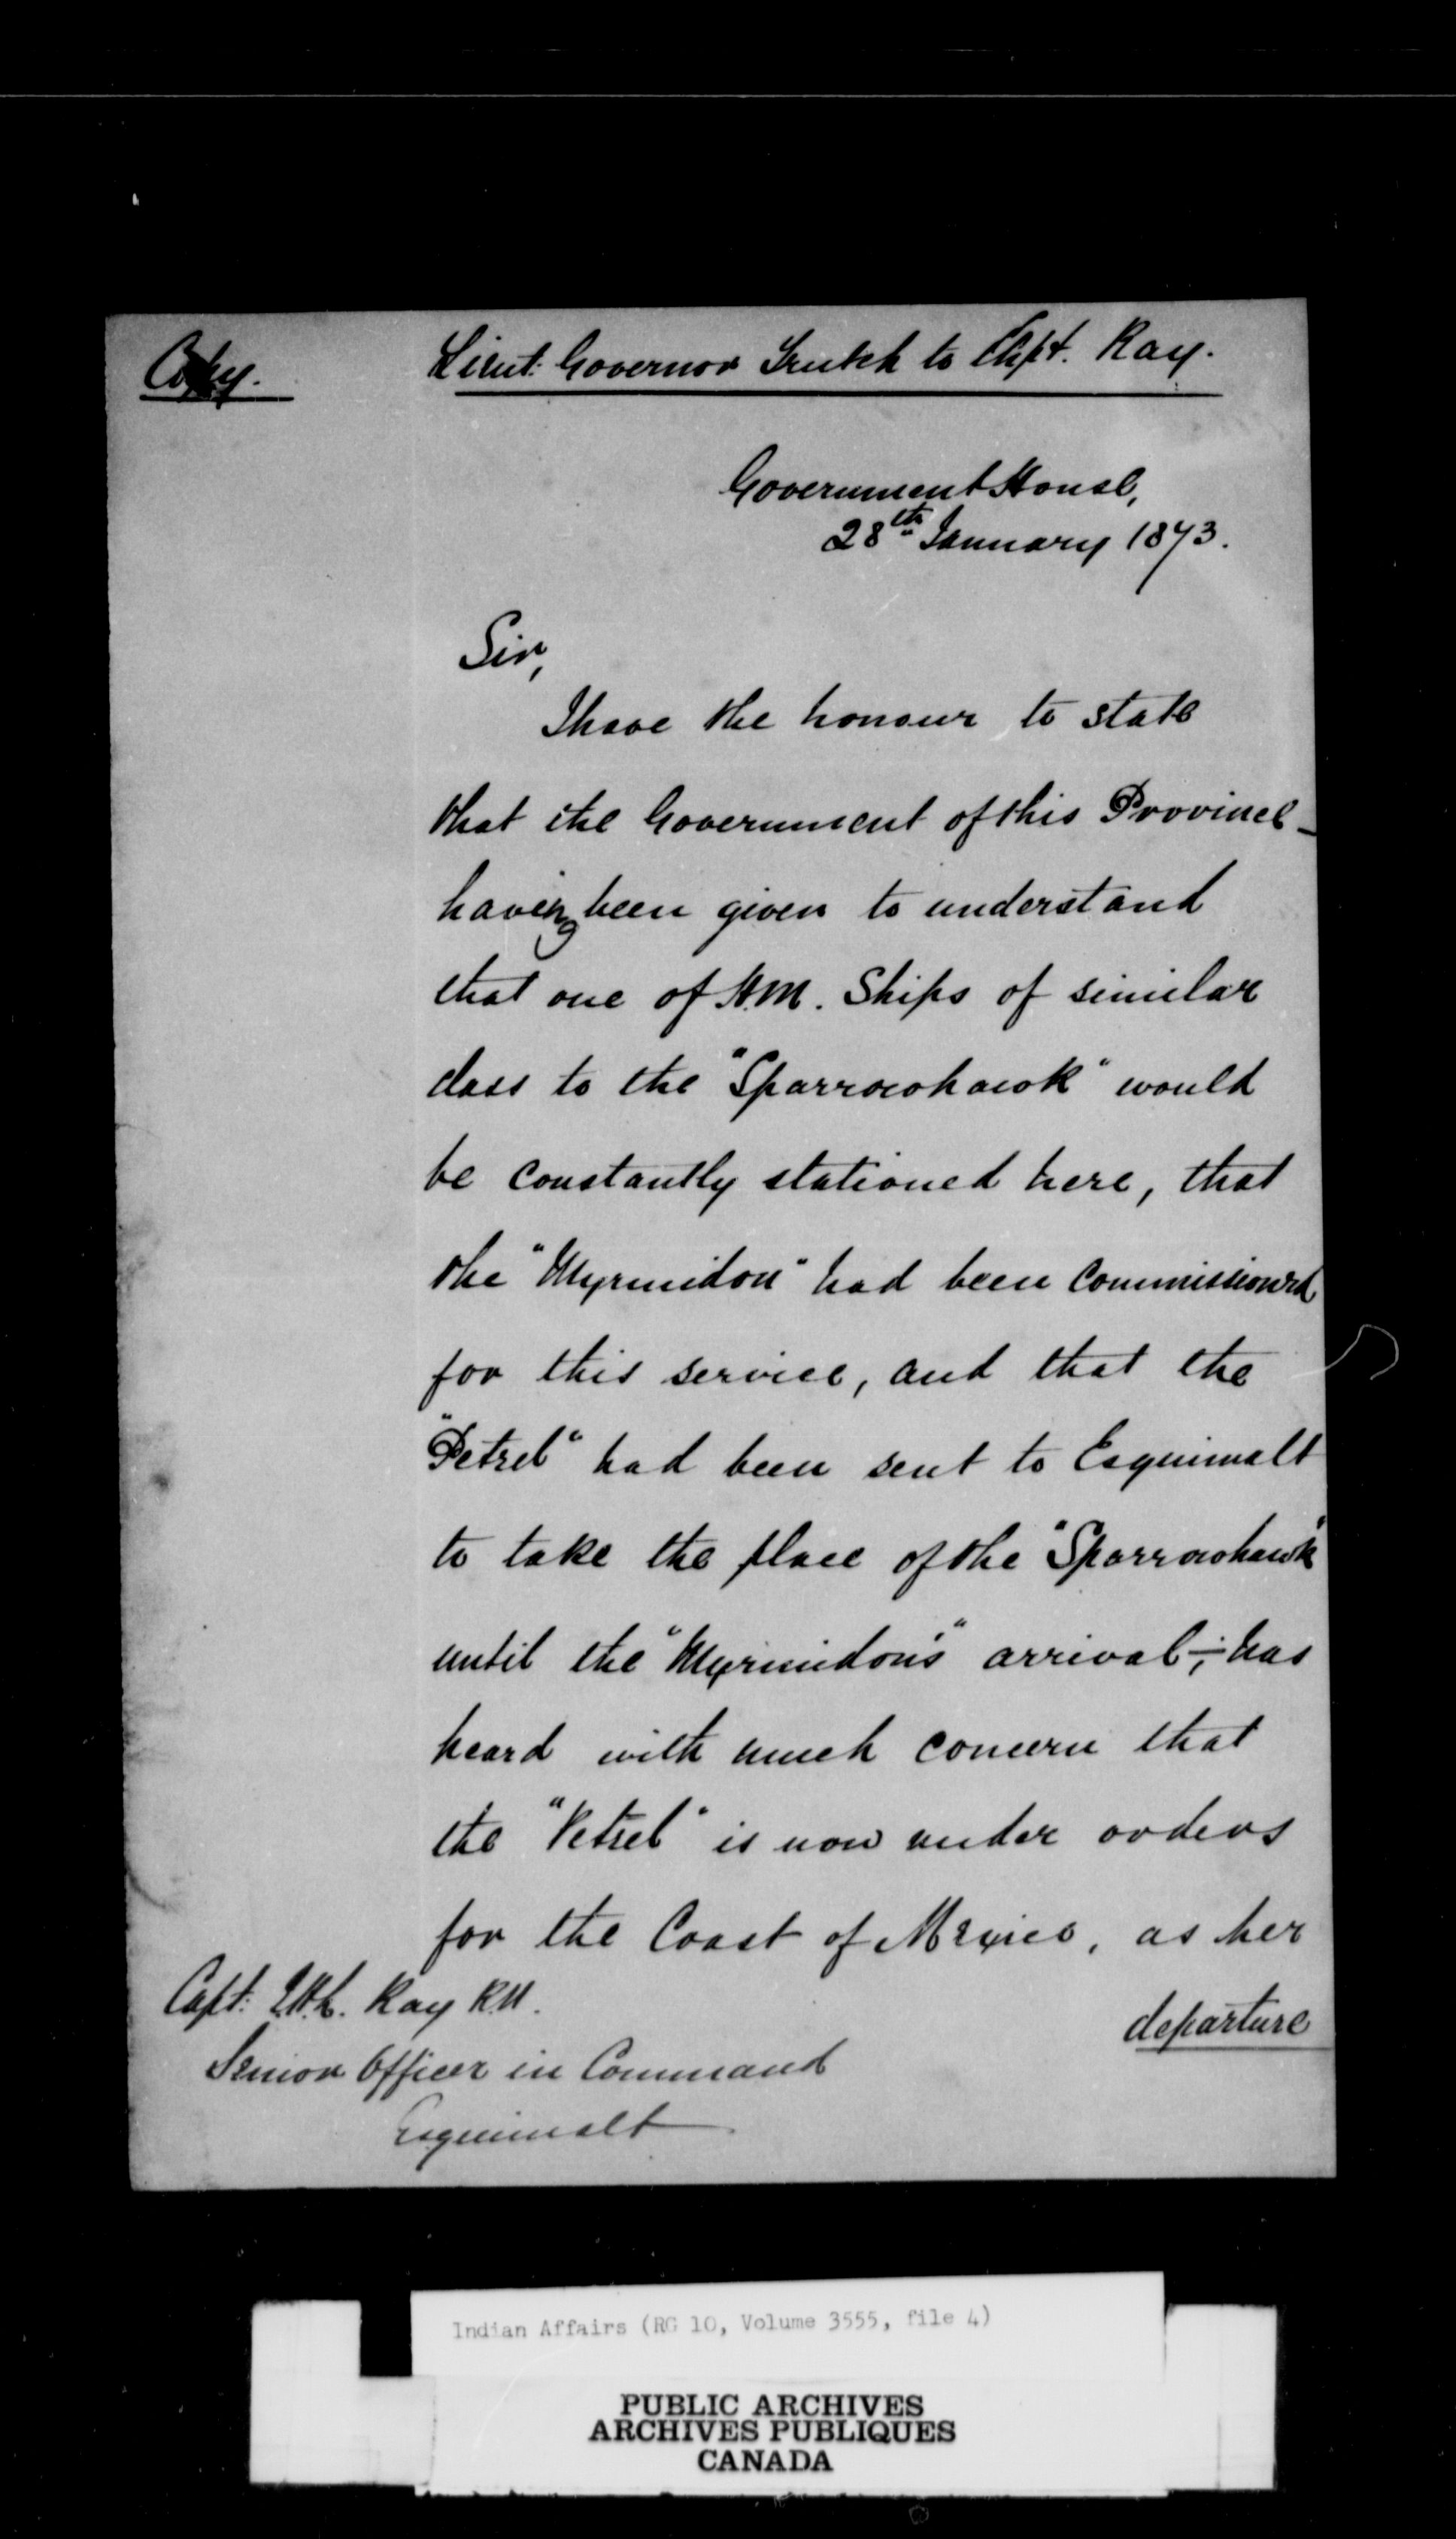 Copy.
Lieut: Governor Trutch to Capt. Ray.
Government House,
28th January 1873.
Sir,
I have the honour to state
that the Government of this Province -
having been given to understand
that one of H.M. Ships of similar
class to the "Sparrowhawk" would
be constantly stationed here, that
the "Myrmidon" had been commissioned
for this service, and that the
"Petrel" had been sent to Esquimalt
to take the place of the "Sparrowhawk"
until the "Myrmidon's" arrival; - has
heard with much concern that
the "Petrel" is now under orders
for the Coast of Mexico, as her
departure
Capt: Ray R.N.
Senior Officer in Command
Esquimalt
Indian Affairs (RG 10, Volume 3555, file 4)
PUBLIC ARCHIVES
ARCHIVES PUBLIQUES
CANADA